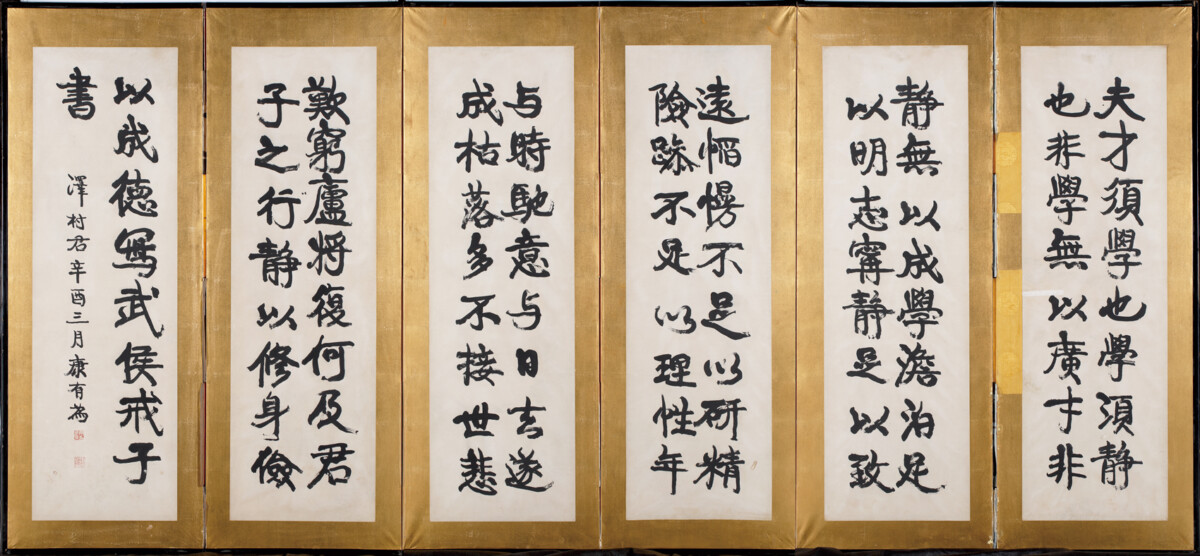 夫才須學也學須静
也非學無以廣才非
静無以成學澹泊足
以明志寧静足以致
遠慆慢不足以研精
險躁不足以理性年
与時馳意与日去遂
成枯落多不接世悲
歎窮廬将復何及君
子之行静以修身儉
以成德寫武侯戒子
書
澤村君辛酉三月康有為